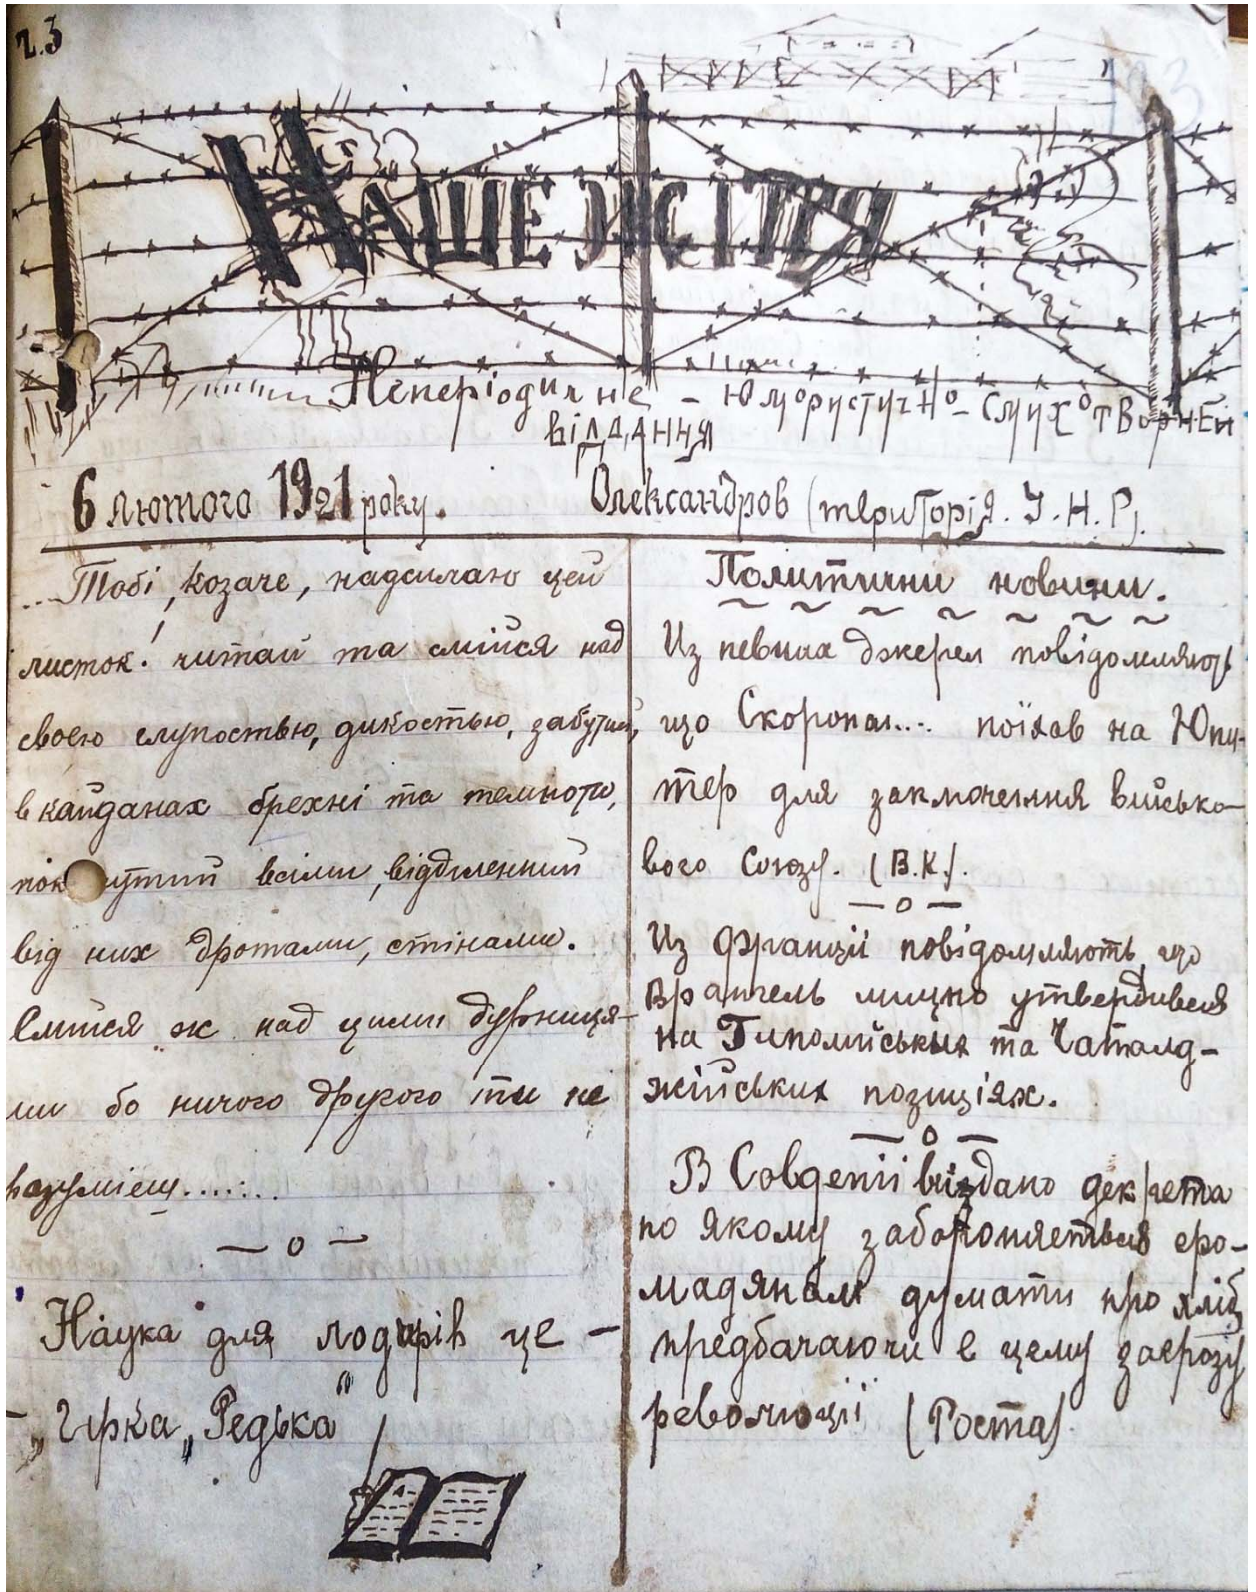 ч.3
НАШЕ ЖІТТЯ
Неперіодичне - юмористично-смихотворней
віддання
6 лютого 1921 року.
Олександров (територія. У.Н.Р).
...Тобі, козаче, надсилаю цей
листок! читай та смійся над
своею глупостью, дикостью, забутий,
в кайданах брехні та темноти,
пок утий всіми, відділенний
від них дротами, стінами.
Смійся ж над цими дурниця-
ми бо ничого другого ти не
разумієш.......
— о —
Наука для лодирів це -
- „Гірка „Редька"
Политични новини.
Из певних джерел повідомляють
що Скоропа.... поїхав на Юпи-
тер для заключення військо-
вого союзу. (В.К.).
— о —
Из Франції повідомляють, що
Врангель мицно утвердився
на Галиполійських та Чаталд-
жійських позиціях.
— о —
В Совдепії віздано декрета
по якому забороняеться гро-
мадянам думати про хліб
предбачаючи в цему загрозу
революції (Роста)